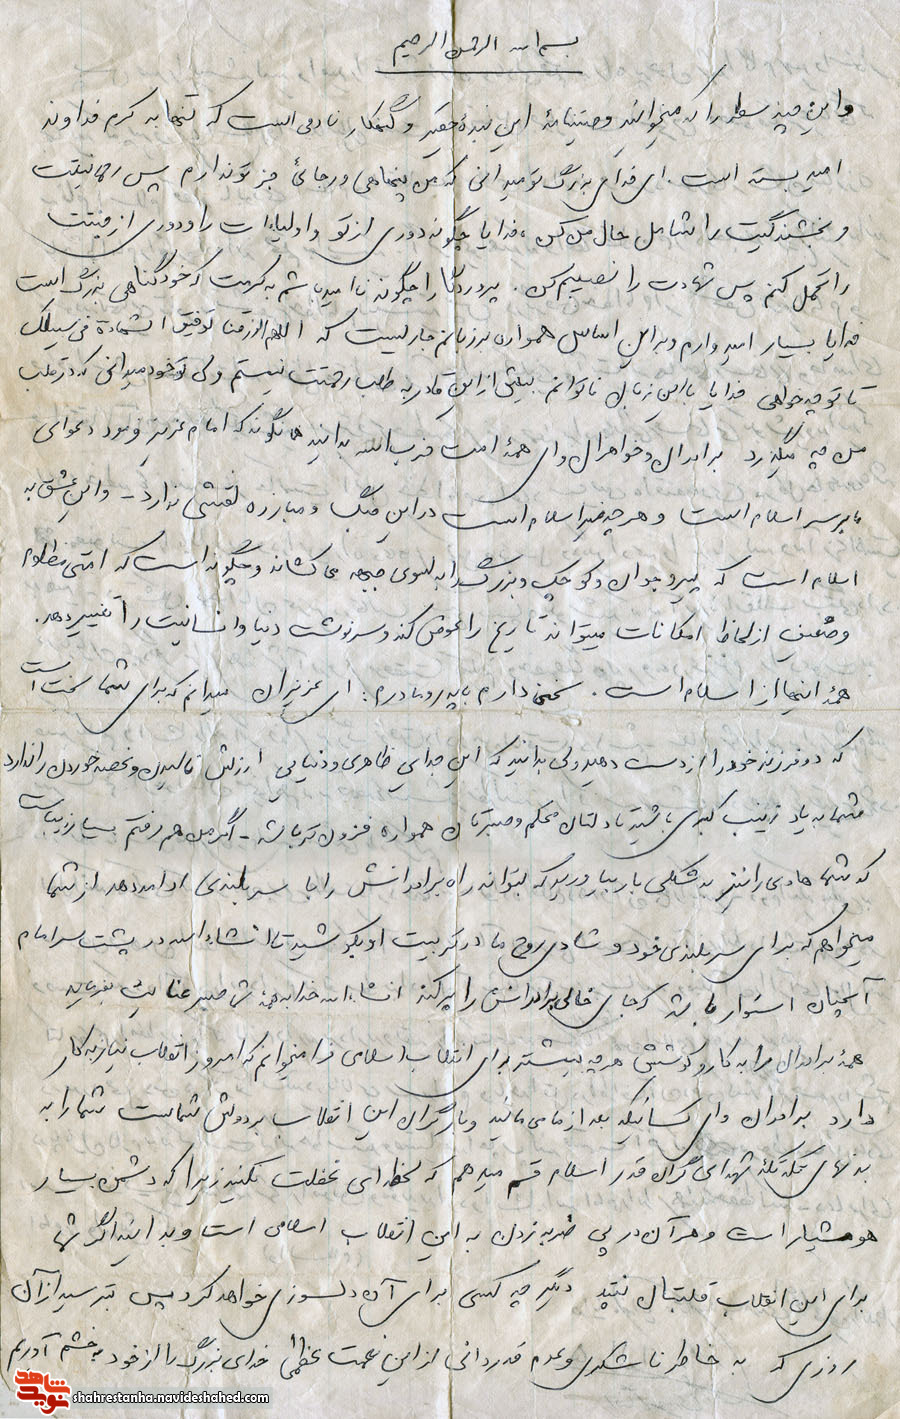 بسم الله الرحمن الرحیم
و این چند سطر را که میخوانید وصیتنامهٔ این بندهٔ حقیر و گنهکار نادمی است که تنها به کرم خداوند
امید بسته است. ای خدای بزرگ تو میدانی که من پناهی و رجائی جز تو ندارم پس رحمانیتت
و بخشندگیت را شامل حال من کن، خدایا چگونه دوری از تو و اولیاءات را و دوری از جنتت
را تحمل کنم پس شهادت را نصیبم کن. پروردگارا چگونه ناامید باشم به کرمت که خود گناهی بزرگ است
خدایا بسیار امیدوارم و بر این اساس همواره بر زبانم جاریست که اللهم ارزقنا توفیق الشهادة فی سبیلک
تا تو چه خواهی خدایا با این زبان ناتوانم بیش از این قادر به طلب رحمتت نیستم ولی تو خود میدانی که در قلب
من چه میگذرد برادران و خواهران وای همهٔ امت حزب الله بدانید همانگونه که امام عزیز فرمود دعوای
ما بر سر اسلام است و هر چه غیر اسلام است در این جنگ و مبارزه نقشی ندارد - و این عشق به
اسلام است که پیر و جوان و کوچک و بزرگ را به سوی جبهه می کشاند و چگونه است که امتی مظلوم
و ضعیف از لحاظ امکانات میتواند تاریخ را عوض کند و سرنوشت دنیا و انسانیت را تغییر دهد.
همهٔ اینها از اسلام است. سخنی دارم با پدر و مادرم: ای عزیزان میدانم که برای شما سخت است
که دو فرزند خود را از دست دهید ولی بدانید که این جدایی ظاهری و دنیایی ارزش نالیدن و غصه خوردن را ندارد
شما به یاد زینب کبری باشید تا دلتان محکم و صبرتان همواره فزون تر باشد - اگر من هم رفتم بسیار زیباست
که شما هادی را نیز به شکلی بار بیاورید که بتواند راه برادرانش را با سربلندی ادامه دهد از شما
میخواهم که برای سربلندی خود و شادی روح ما در تربیت او بکوشید تا انشاءالله در پشت سر امام
آنچنان استوار باشد که جای خالی برادرانش را پر کند انشاءالله خدا به همهٔ شما صبر عنایت بفرماید
همهٔ برادران را به کار و کوشش هر چه بیشتر برای انقلاب اسلامی فرا میخوانم که امروز انقلاب نیاز به کار
دارد برادران وای کسانیکه بعد از ما می مانید و بار گران این انقلاب بر دوش شماست شما را به
بدنهای تکه تکهٔ شهدای گران قدر اسلام قسم میدهم که لحظه ای غفلت نکنید زیرا که دشمن بسیار
هوشیار است و هر آن در پی ضربه زدن به این انقلاب اسلامی است و بدانید اگر شما
برای این انقلاب قلبتان نتپد دیگر چه کسی برای آن دلسوزی خواهد کرد پس بترسید از آن
روزی که به خاطر ناشکری و عدم قدردانی از این نعمت عظمی خدای بزرگ را از خود به خشم آوریم
نوید شاهد shahrestanha.navideshahed.com